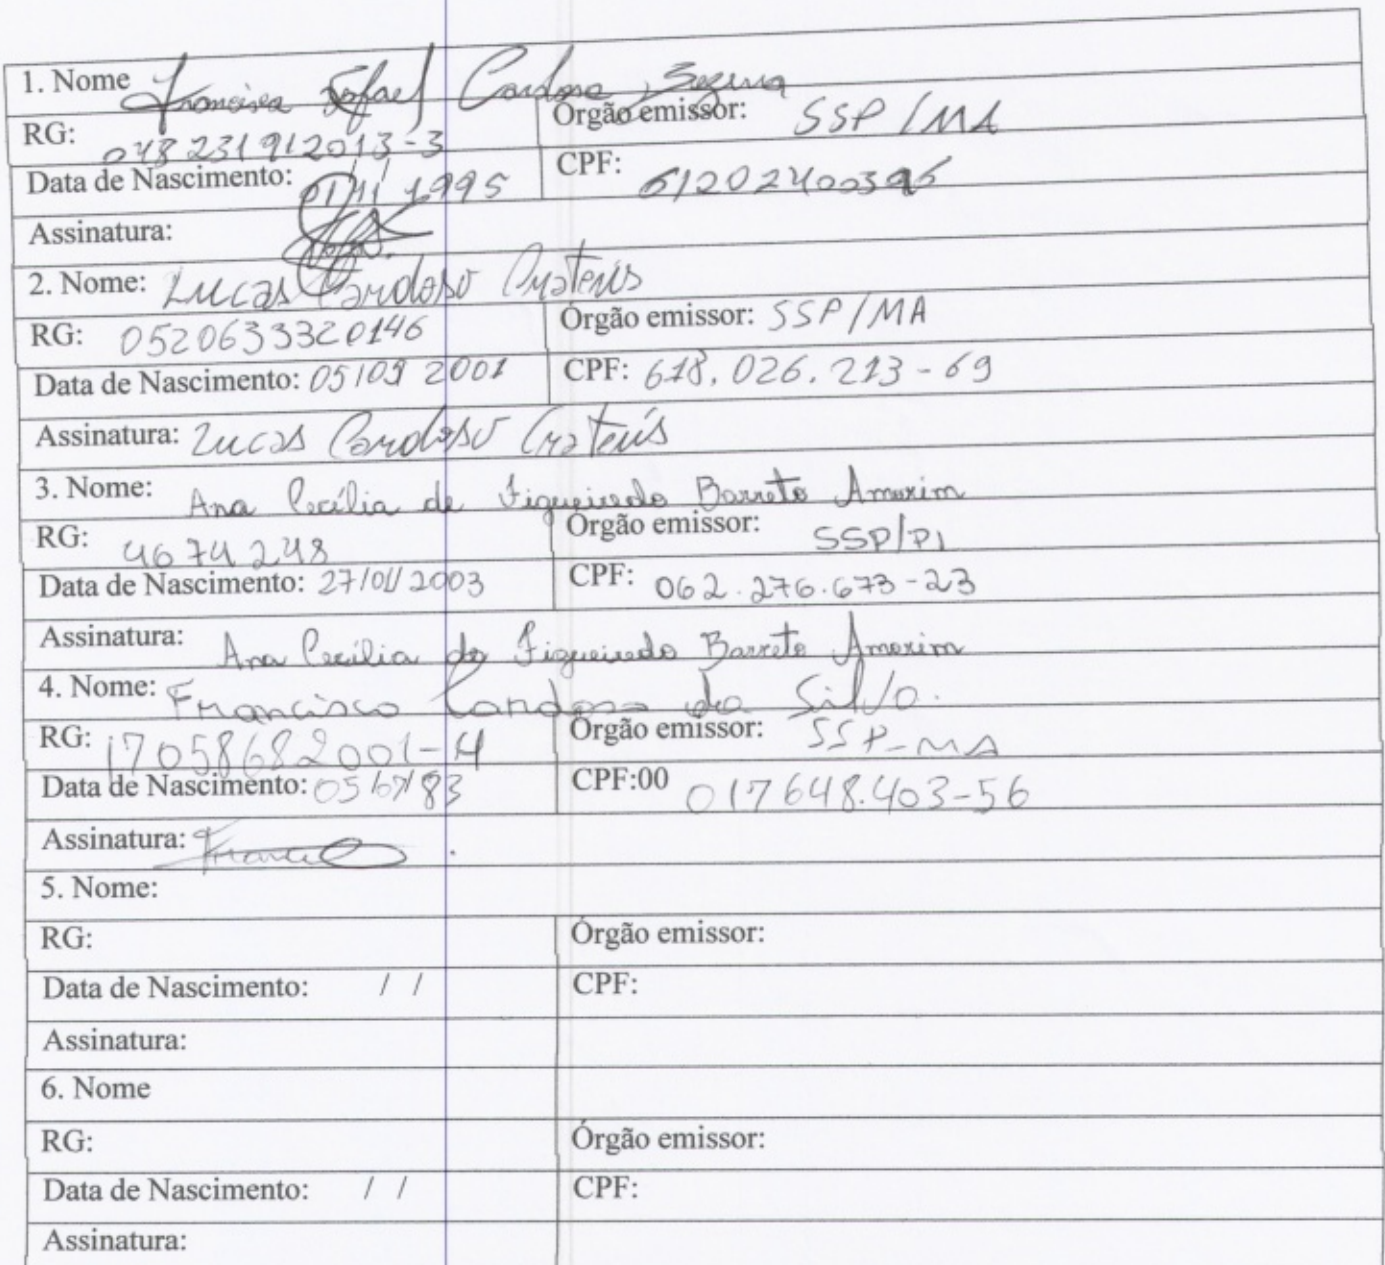 1. Nome Francisca Rafael Cardoso
RG: 048231912013-3 Órgão emissor: SSP/MA
Data de Nascimento: 01/11/1995 CPF:
Assinatura:
2. Nome: Lucas Cardoso Crateús
RG: 0520633320146 Órgão emissor: SSP/MA
Data de Nascimento: 05/09 2001 CPF: 618.026.213-69
Assinatura: Lucas Cardoso Crateús
3. Nome: Ana Cecília de Figueiredo Barreto Amorim
RG: 4674248 Órgão emissor: SSP/PI
Data de Nascimento: 27/01/2003 CPF: 062.276.673-23
Assinatura: Ana Cecília de Figueiredo Barreto Amorim
4. Nome: Francisco Cardoso da Silva.
RG: 17058682001-4 Órgão emissor: SSP-MA
Data de Nascimento: 05/07/83 CPF:00 017648.403-56
Assinatura:
5. Nome:
RG: Órgão emissor:
Data de Nascimento: / / CPF:
Assinatura:
6. Nome
RG: Órgão emissor:
Data de Nascimento: / / CPF:
Assinatura: